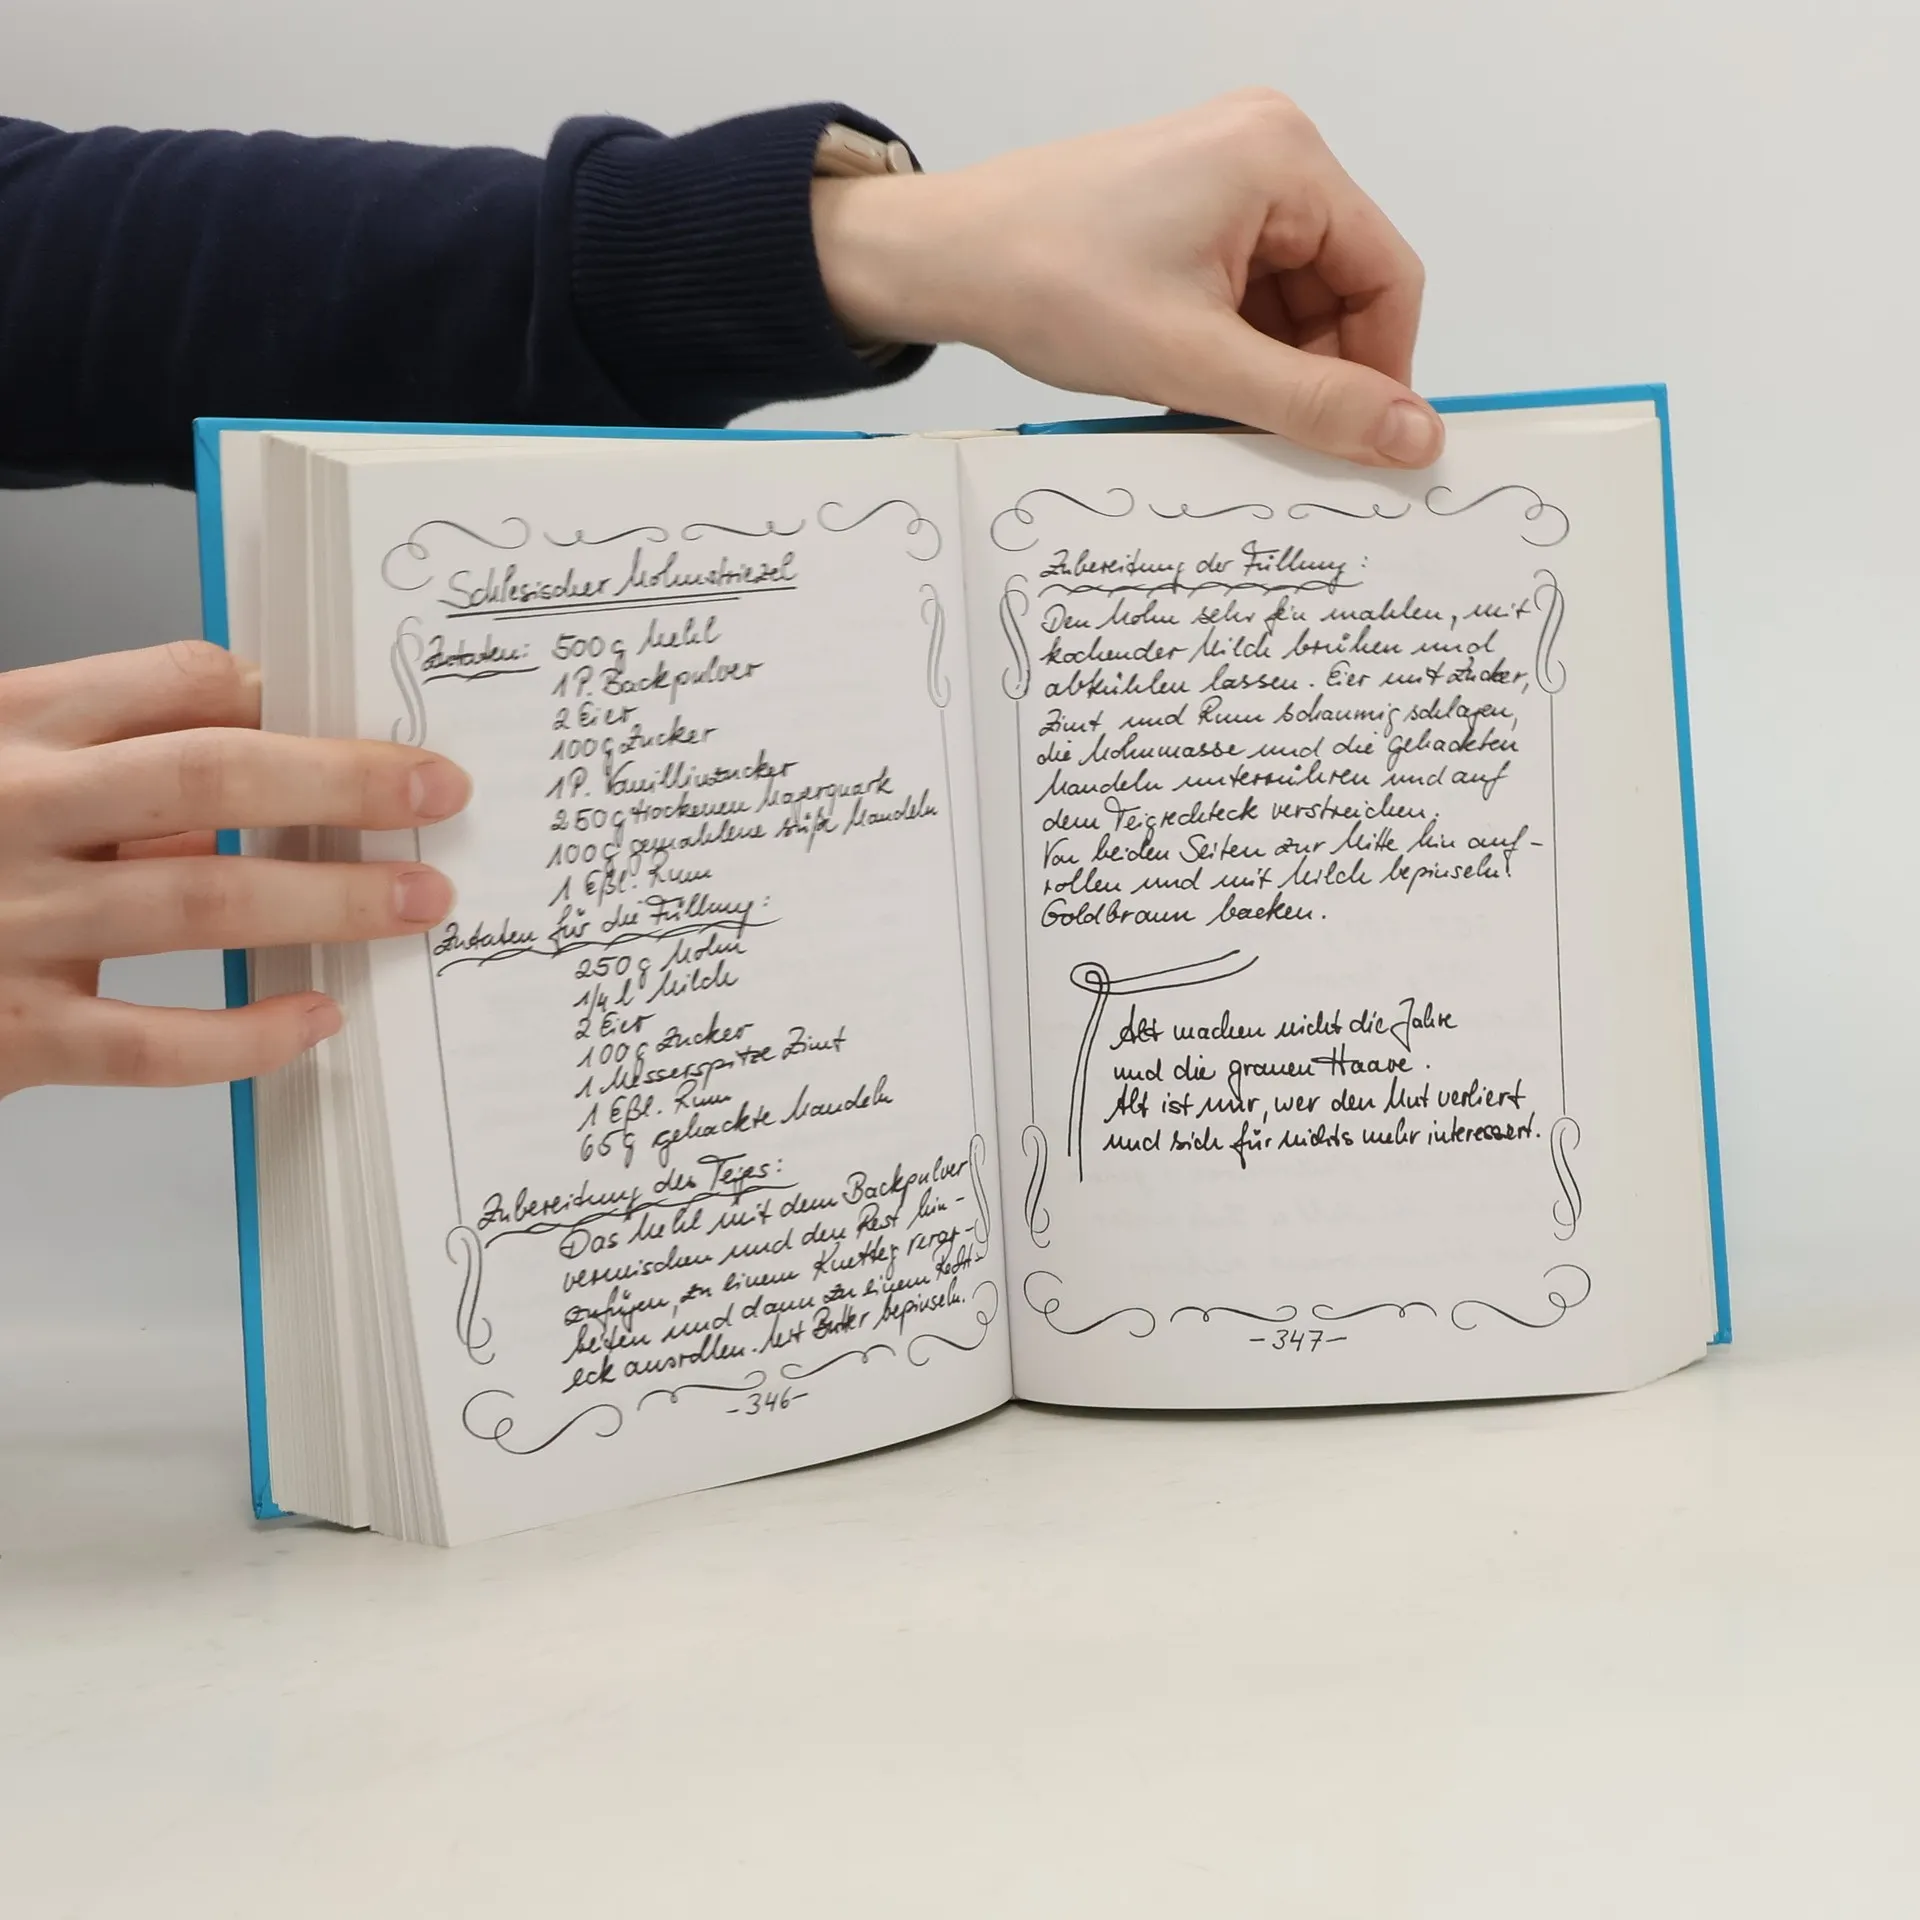 Schlesischer Mohnstriezel
Zutaten: 500 g Mehl
1 P. Backpulver
2 Eier
100 g Zucker
1 P. Vanillinzucker
250 g trockenen Magerquark
100 g gemahlene süße Mandeln
1 Eßl. Rum
Zutaten für die Füllung:
250 g Mohn
1/4 l Milch
2 Eier
100 g Zucker
1 Messerspitze Zimt
1 Eßl. Rum
65 g gehackte Mandeln
Zubereitung des Teiges:
Das Mehl mit dem Backpulver
vermischen und den Rest hin-
zufügen, zu einem Knetteig verar-
beiten und dann zu einem Recht-
eck ausrollen. Mit Butter bepinseln.
-346-
Zubereitung der Füllung:
Den Mohn sehr fein mahlen, mit
kochender Milch brühen und
abkühlen lassen. Eier mit Zucker,
Zimt und Rum schaumig schlagen,
die Mohnmasse und die gehackten
Mandeln unterrühren und auf
dem Teigrechteck verstreichen.
Von beiden Seiten zur Mitte hin auf-
rollen und mit Milch bepinseln.
Goldbraun backen.
Alt machen nicht die Jahre
und die grauen Haare.
Alt ist nur, wer den Mut verliert
und sich für nichts mehr interessiert.
-347-